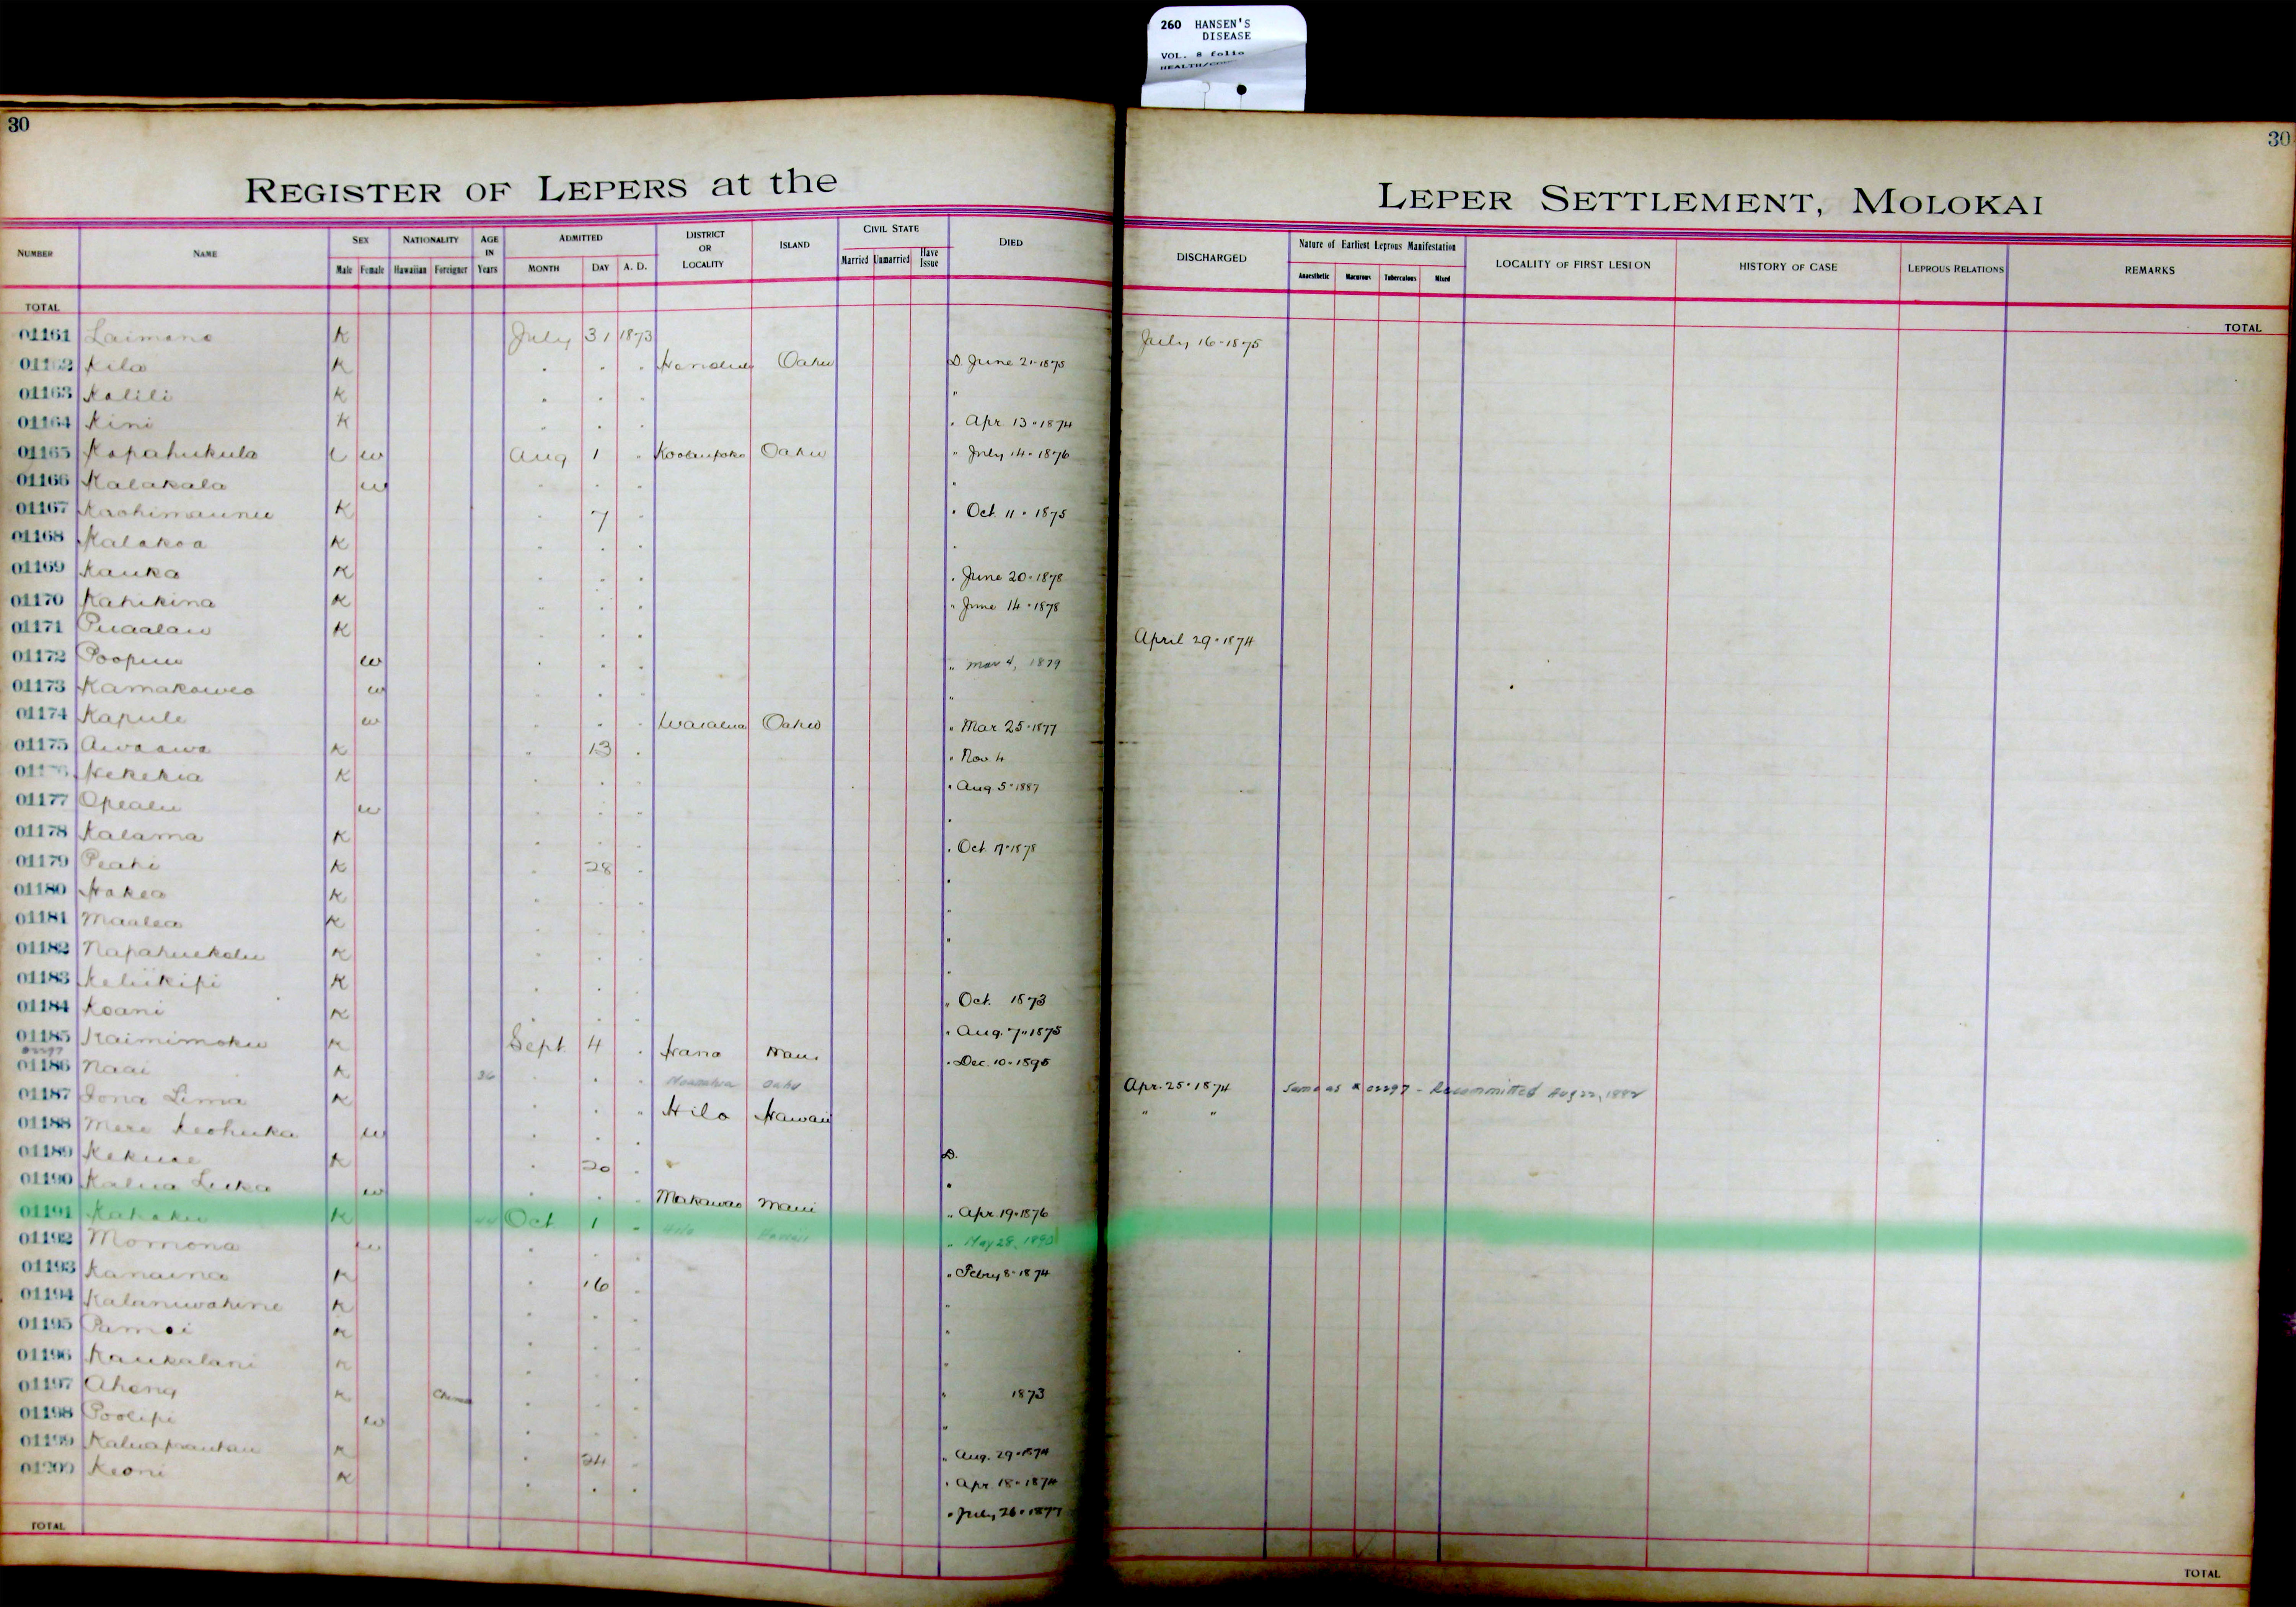 260 HANSEN'S
DISEASE
VOL. 8 folio
30
30
REGISTER OF LEPERS at the
LEPER SETTLEMENT, MOLOKAI
NUMBER NAME SEX Male Female NATIONALITY Hawaiian Foreigner AGE IN Years ADMITTED MONTH DAY A. D. DISTRICT OR LOCALITY ISLAND CIVIL STATE Married Unmarried Have Issue DIED
DISCHARGED Nature of Earliest Leprous Manifestation Anaesthetic Macurous Tuberculous Mixed LOCALITY OF FIRST LESION HISTORY OF CASE LEPROUS RELATIONS REMARKS
TOTAL
TOTAL
01161 Laimana K July 31 1873 July 16 - 1875
Kila K . . . Honolulu Oahu D. June 21 - 1875
01163 Kalili K . . . "
01164 Kini K . . . . Apr. 13 - 1874
01165 Kapahukula w Aug 1 . Koolaupoko Oahu " July 14 - 1876
01166 Kalakala w . . . .
01167 K . 7 . . Oct. 11 - 1875
01168 Kalakoa K . . . .
01169 Kauka K . . . . June 20 - 1878
01170 Kahikina K . . . " June 14 - 1878
01171 Puaalau K . . . April 29 - 1874
01172 w . . . " Mar 4, 1879
01173 w . . . "
01174 Kapule w . . . Waialua Oahu " Mar. 25 - 1877
01175 Awaawa K . 13 . " Nov. 4
Kekekia K . . . " Aug 5 - 1887
01177 Opealu w . . . .
01178 Kalama K . . . . Oct. 17 - 1878
01179 Peahi K . 28 . .
01180 Hakea K . . . .
01181 Maalea K . . . .
01182 Napahuekolu K . . . .
01183 Keliikipi K . . . " Oct. 1873
01184 Koani K . . . " Aug. 7 - 1875
01185 Kaimimoku K Sept. 4 . Hana Maui . Dec. 10 - 1895
01186 Naai K 36 . . . Oahu Apr. 25 - 1874 Same as # 02297 - Recommitted Aug 22, 1882
01187 Iona Lima K . . . Hilo Hawaii " "
01188 Mere Keohuka w . . .
01189 K . 20 . D.
01190 Kalua Luka w . . . Makawao Maui " Apr. 19 - 1876
01191 Kahaku K 44 Oct 1 . Hilo Hawaii " May 28, 1890
01192 Momona w . . . " Febry 8 - 1874
01193 Kanaina K . 16 . "
01194 Kalaniwahine K . . . .
01195 K . . . "
01196 Kaukalani K . . . " 1873
01197 Aheng K . . . "
01198 Poolipi w . . . " Aug. 29 - 1874
01199 K . 24 . . Apr. 18 - 1874
01200 Keoni K . . . . July 26 - 1877
TOTAL
TOTAL